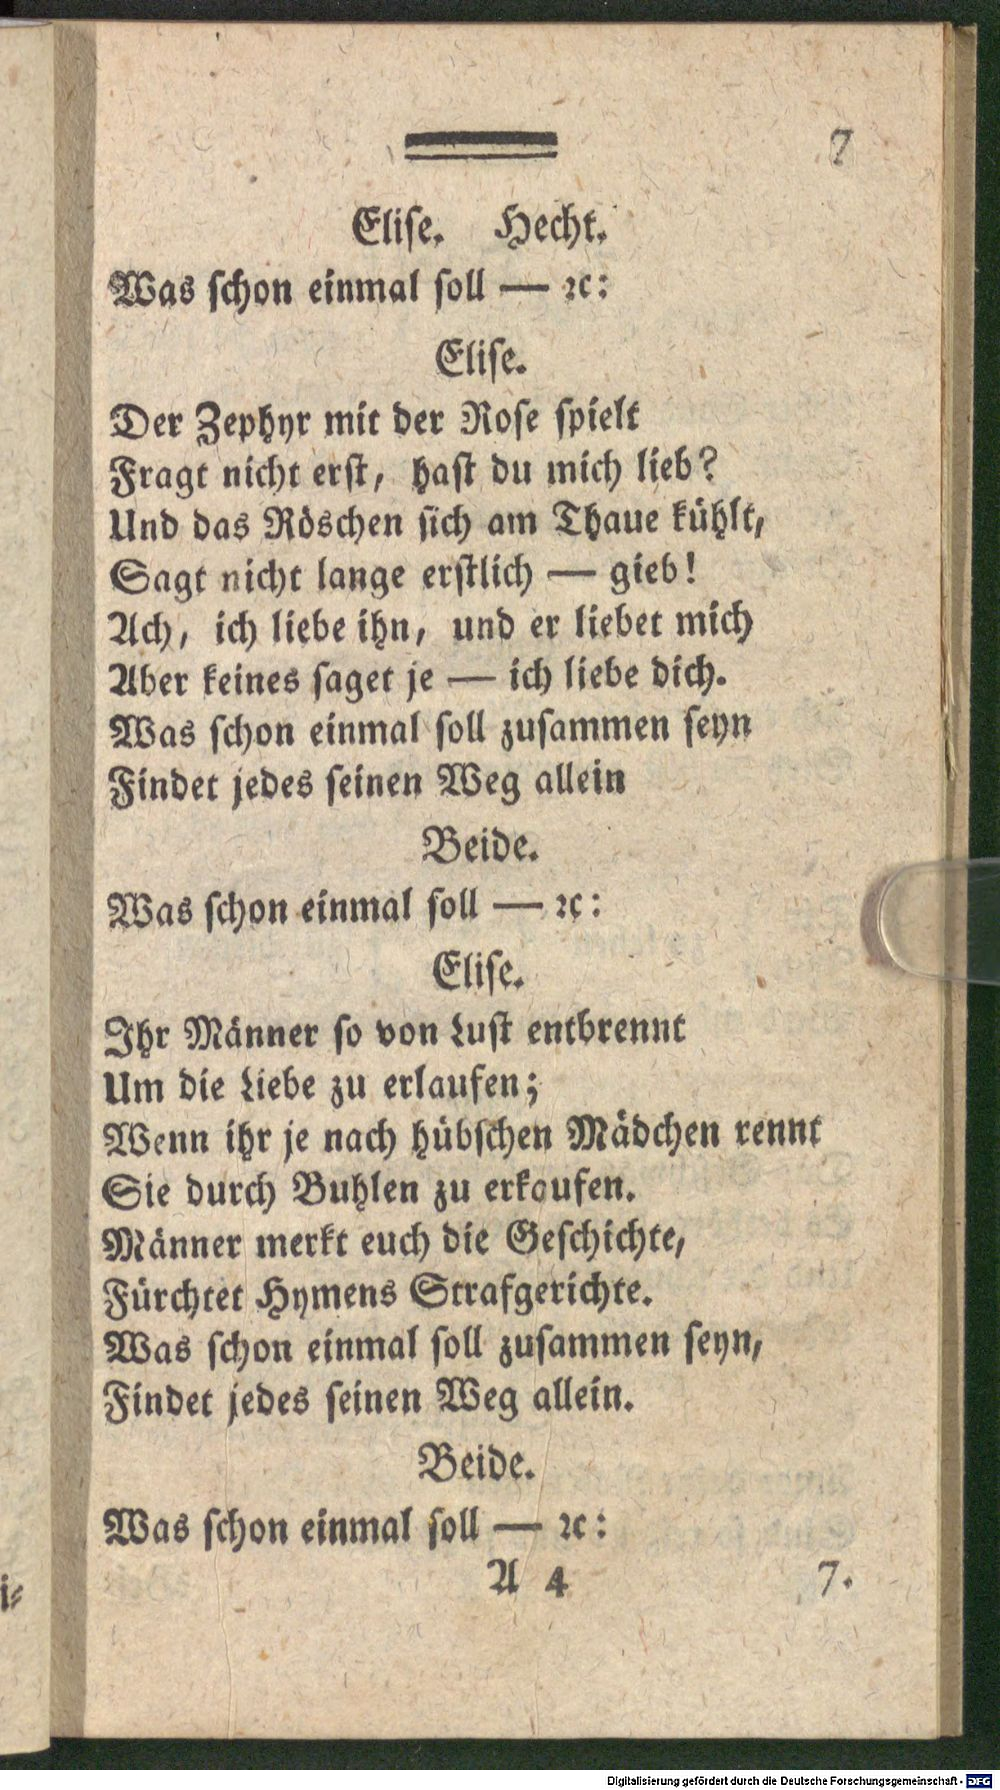 7
Eliſe. Hecht.
Was ſchon einmal ſoll — ꝛc:
Eliſe.
Der Zephyr mit der Roſe ſpielt
Fragt nicht erſt, haſt du mich lieb?
Und das Röschen ſich am Thaue kühlt,
Sagt nicht lange erſtlich — gieb!
Ach, ich liebe ihn, und er liebet mich
Aber keines ſaget je — ich liebe dich.
Was ſchon einmal ſoll zuſammen ſeyn
Findet jedes ſeinen Weg allein
Beide.
Was ſchon einmal ſoll — ꝛc:
Eliſe.
Ihr Männer ſo von Luſt entbrennt
Um die Liebe zu erlaufen;
Wenn ihr je nach hübſchen Mädchen rennt
Sie durch Buhlen zu erkaufen.
Männer merkt euch die Geſchichte,
Fürchtet Hymens Strafgerichte.
Was ſchon einmal ſoll zuſammen ſeyn,
Findet jedes ſeinen Weg allein.
Beide.
Was ſchon einmal ſoll — ꝛc:
A 4 7.
i⸗
Digitalisierung gefördert durch die Deutsche Forschungsgemeinschaft - DFG